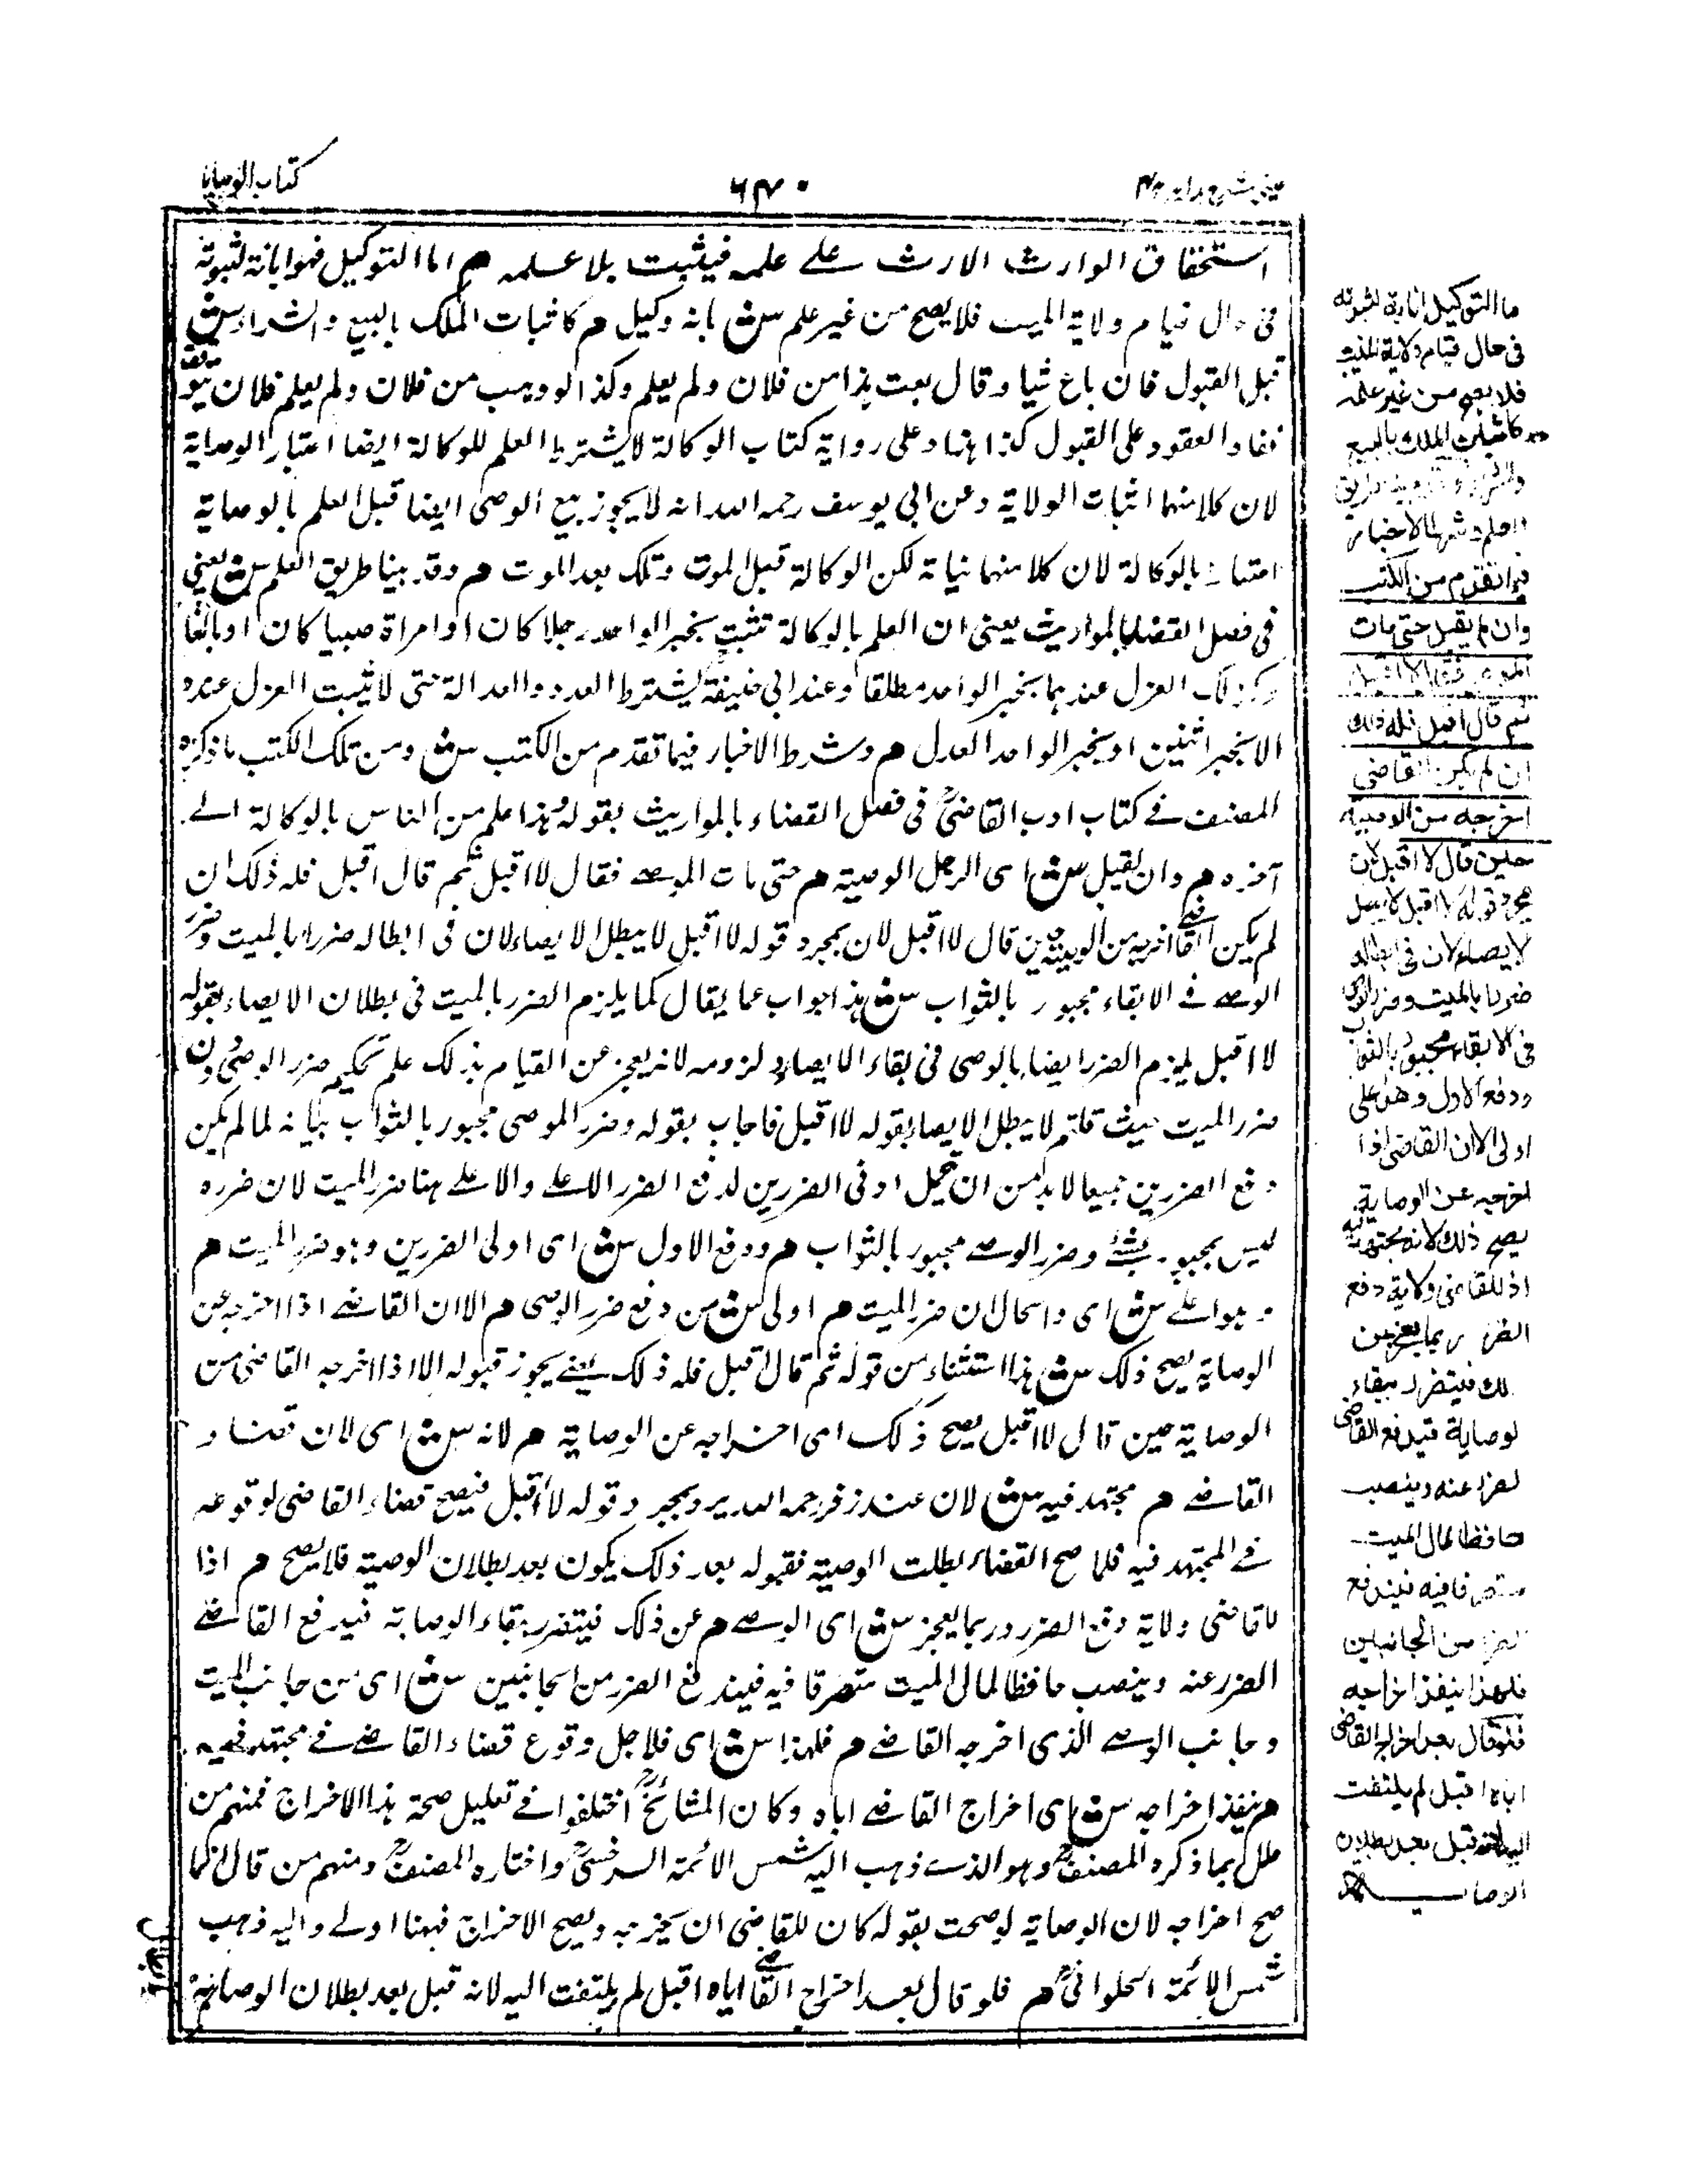 كتاب الوصايا
۶۴۰
عینی شرح ہدایہ ج۴
استحقاق الوارث الارث علے علمہ فیثبت بلا علمہ م اما التوکیل فہو انابة لثبوتہ
فی حال قیام ولایة المیت فلا یصح من غیر علم ش بانہ وکیل م کاثبات الملک بالبیع والشراء ش
قبل القبول فان باع شیا وقال بعت ہذا من فلان ولم یعلم وکذا لو وہب من فلان ولم یعلم فلان
نفاذ العقود علی القبول کذا ہنا وعلی روایة کتاب الوکالة لا یشترط العلم للوکالة ایضا اعتبار الوصایة
لان کلا منہما اثبات الولایة وعن ابی یوسف رحمہ اللہ انہ لا یجوز بیع الوصی ایضا قبل العلم بالوصایة
اعتبارا بالوکالة لان کلا منہما نیابة لکن الوکالة قبل الموت وتلک بعد الموت م وقد بینا طریق العلم ش یعنی
فی فصل القضاء بالمواریث یعنی ان العلم بالوکالة تثبت بخبر الواحد رجلا کان او امراة صبیا کان او بالغا
وکذلک العزل عندہما بخبر الواحد مطلقا وعند ابی حنیفة یشترط العدد والعدالة حتی لا یثبت العزل عندہ
الا بخبر اثنین او بخبر الواحد العدل م وشرط الاخبار فیما تقدم من الکتب ش ومن تلک الکتب ما ذکرہ
المصنف فے کتاب ادب القاضی فی فصل القضاء بالمواریث بقولہ وہذا علم من الناس بالوکالة الے
آخرہ م وان لم یقبل ش ای الرجل الوصیة م حتی مات الموصے فقال لا اقبل ثم قال اقبل فلہ ذلک ان
لم یکن القاضے اخرجہ من الوصیة حین قال لا اقبل لان بمجرد قولہ لا اقبل لا یبطل الایصاء لان فی ابطالہ ضررا بالمیت وضرر
الوصے فے الابقاء مجبور بالثواب ش ہذا جواب عما یقال کما یلزم الضرر بالمیت فی بطلان الایصاء بقولہ
لا اقبل یلزم الضرر ایضا بالوصی فی بقاء الایصاء ولزومہ لانہ یعجز عن القیام بذلک علم تحکیم ضرر الوصی دون
ضرر المیت حیث قلتم لا یبطل الایصاء بقولہ لا اقبل فاجاب بقولہ وضرر الموصی مجبور بالثواب بیانہ لما لم یکن
دفع الضررین جمیعا لا بد من ان تحمل ادنی الضررین لدفع الضرر الاعلے والاعلے ہنا ضرر المیت لان ضررہ
لیس بمجبور بشئ وضرر الوصے مجبور بالثواب م ودفع الاول ش ای اولی الضررین وہو ضرر المیت م
وہو اعلے ش ای والحال ان ضرر المیت م اولی ش من دفع ضرر الوصی م الا ان القاضے اذا اخرجہ عن
الوصایة یصح ذلک ش ہذا استثناء من قولہ ثم قال اقبل فلہ ذلک یعنے یجوز قبولہ الا اذا اخرجہ القاضی من
الوصایة حین قال لا اقبل یصح ذلک ای اخراجہ عن الوصایة م لانہ ش ای لان قضاء
القاضے م مجتہد فیہ ش لان عند زفر رحمہ اللہ یرد بمجرد قولہ لا اقبل فیصح قضاء القاضی لوقوعہ
فے المجتہد فیہ فلما صح القضاء بطلت الوصیة فقبولہ بعد ذلک یکون بعد بطلان الوصیة فلا یصح م اذا
للقاضی ولایة دفع الضرر وربما یعجز ش ای الوصے م عن ذلک فیتضرر ببقاء الوصایة فیدفع القاضے
الضرر عنہ وینصب حافظا لمال المیت متصرفا فیہ فیندفع الضرر من الجانبین ش ای من جانب المیت
وجانب الوصے الذی اخرجہ القاضے م فلہذا ش ای فلاجل وقوع قضاء القاضے فے مجتہد فیہ
م ینفذ اخراجہ ش ای اخراج القاضے ایاہ وکان المشائخ اختلفوا فے تعلیل صحة ہذا الاخراج فمنہم من
علل بما ذکرہ المصنف وہو الذے ذہب الیہ شمس الائمة السرخسی واختارہ المصنف ومنہم من قال انما
صح اخراجہ لان الوصایة لو صحت بقولہ کان للقاضی ان یخرجہ ویصح الاخراج فہنا اولے والیہ ذہب
شمس الائمة الحلوانی م فلو قال بعد اخراج القاضے ایاہ اقبل لم یلتفت الیہ لانہ قبل بعد بطلان الوصایة
ما التوكيل انابة لثبوته
فى حال قيام ولاية المنيب
فلا يصح من غير علمه
كاثبات الملك بالبيع
والشراء وقد بينا طريق
العلم وشرط الاخبار
فيما تقدم من الكتب
وان لم يقبل حتى مات
الموصى فقال لا اقبل
ثم قال اقبل فله ذلك
ان لم يكن القاضى
اخرجه من الوصية
حين قال لا اقبل لان
بمجرد قوله لا اقبل لا يبطل
لايصاء لان فى ابطاله
ضررا بالميت وضرر الوصى
فى الابقاء مجبور بالثواب
ودفع الاول وهو اعلى
اولى الا ان القاضى اذا
اخرجه عن الوصاية
يصح ذلك لانه مجتهد فيه
اذ للقاضى ولاية دفع
الضرر وربما يعجز عن
ذلك فيتضرر ببقاء
لوصاية فيدفع القاضى
لضرر عنه وينصب
حافظا لمال الميت
متصرفا فيه فيندفع
الضرر من الجانبين
فلهذا ينفذ اخراجه
فلو قال بعد اخراج القاضى
اياه اقبل لم يلتفت
اليه لانه قبل بعد بطلان
الوصاية